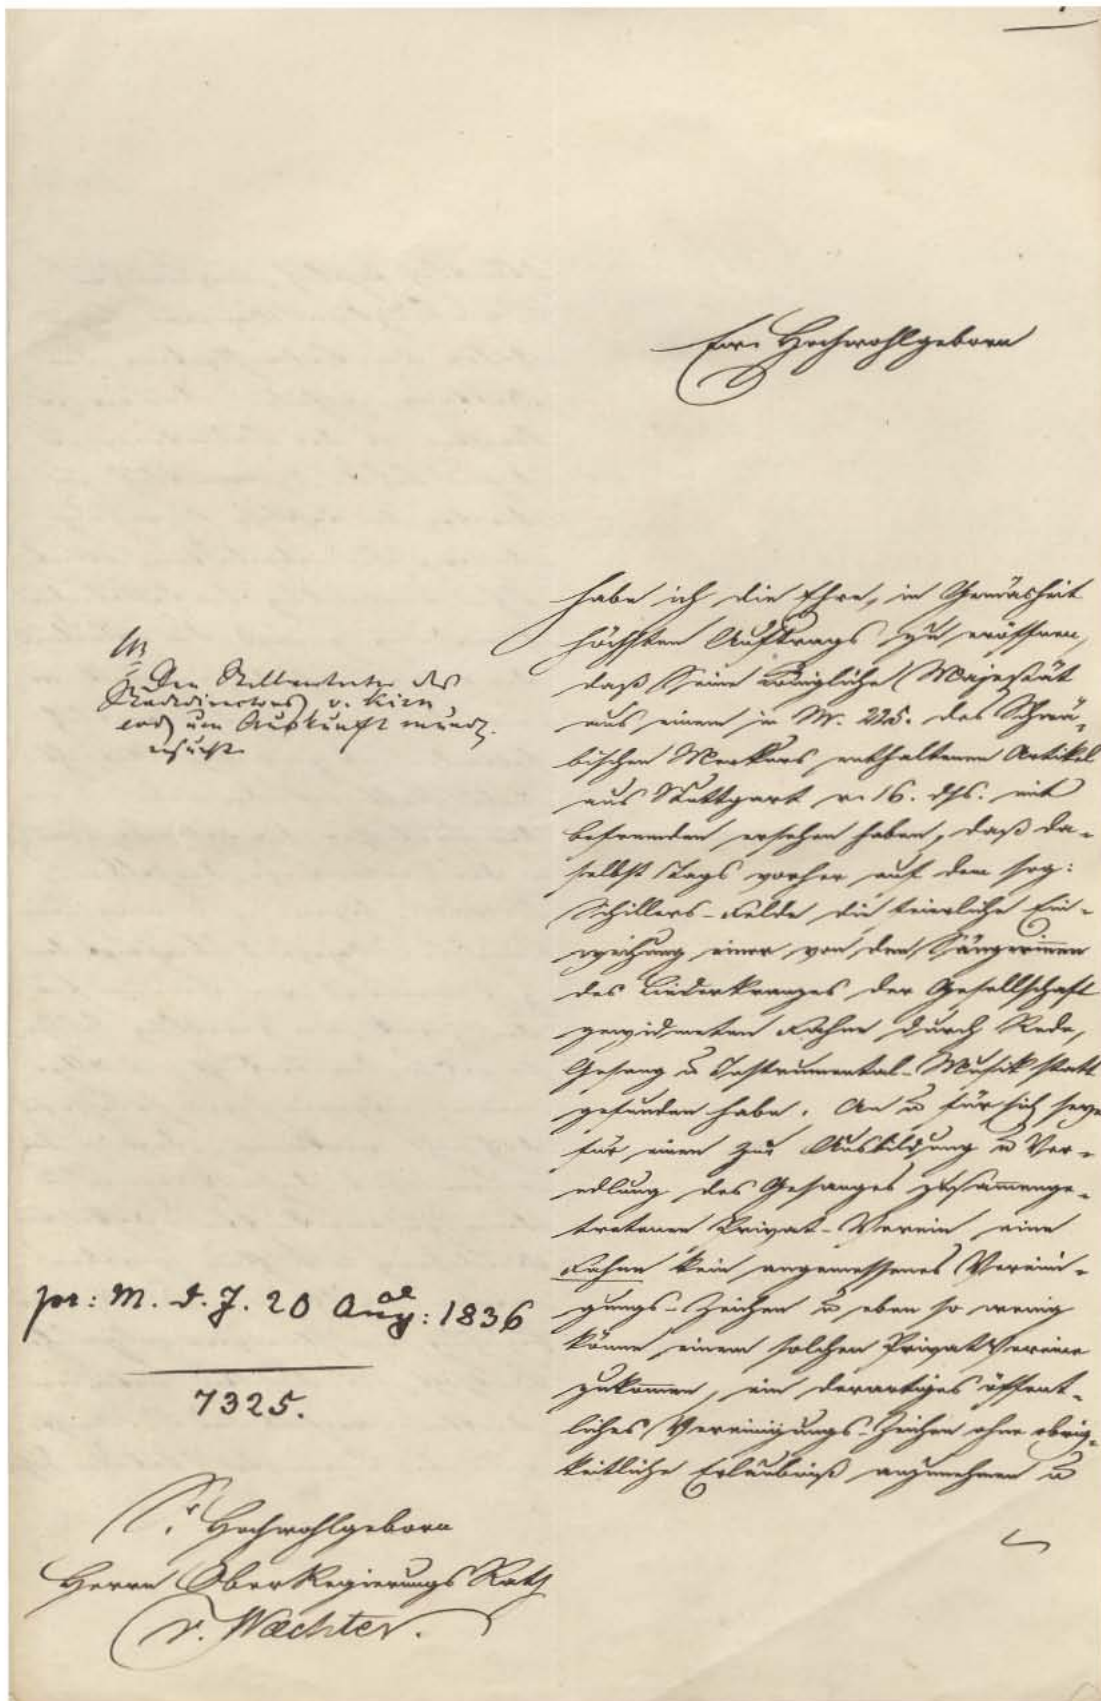 Euer Hochwohlgeborn
habe ich die Ehre, in Gemäsheit
höchsten Auftrags zu eröffnen,
daß Seine Königliche Majestät
aus einem in Nr. 225. des Schwä-
bischen Merkurs enthaltenen Artikel
aus Stuttgart v. 16. dss. mit
Befremden ersehen haben, daß da-
selbst Tags vorher auf dem sog:
Schillers-Felde die feierliche Ein-
weihung einer von den Sängerinnen
des Liederkranzes der Gesellschaft
gewidmeten Fahne durch Rede,
Gesang u Instrumental-Musik statt
gefunden habe. An u für sich seye
für einen zur Ausbildung u Ver-
edlung des Gesanges zusammenge-
tretenen Privat-Verein eine
Fahne kein angemessenes Vereini-
gungs-Zeichen u eben so wenig
könne einem solchen Privatvereine
zukommen, ein derartiges öffent-
liches Vereinigungs-Zeichen ohne obrig-
keitliche Erlaubniß anzunehmen u
Den Stellvertreter des
Stadtdirectors v. Kirn
um Auskunft mündl.
ersucht
pr: M. d. J. 20 Aug: 1836
7325.
Sr Hochwohlgeborn
Herrn OberRegierungsRath
v. Wæchter.